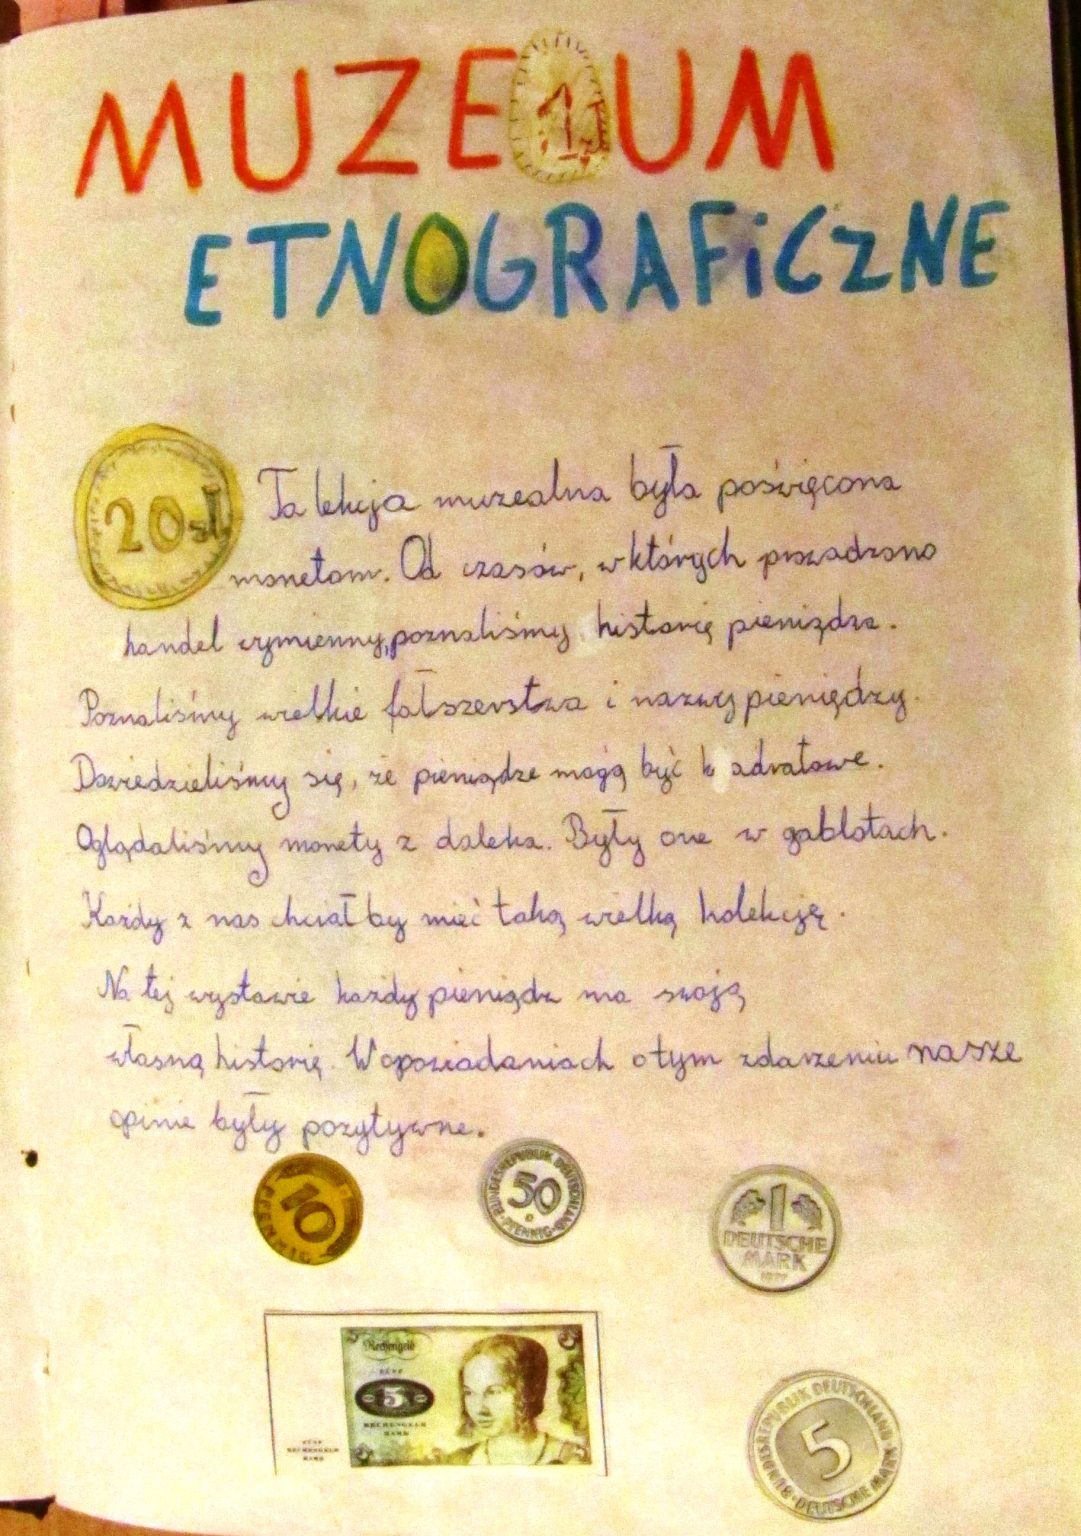 MUZEUM
1 zł
ETNOGRAFiCZNE
20 zł
Ta lekcja muzealna była poświęcona
monetom. Od czasów, w których prowadzono
handel wymienny, poznaliśmy historię pieniądza.
Poznaliśmy wielkie fałszerstwa i nazwy pieniędzy.
Dowiedzieliśmy się, że pieniądze mogą być kwadratowe.
Oglądaliśmy monety z daleka. Były one w gablotach.
Każdy z nas chciałby mieć taką wielką kolekcję.
Na tej wystawie każdy pieniądz ma swoją
własną historię. W opowiadaniach o tym zdarzeniu nasze
opinie były pozytywne.
10
PFENNIG
BUNDESREPUBLIK DEUTSCHLAND
50
PFENNIG
1
DEUTSCHE
MARK
5 Rechengeld 5
FÜNF
5
RECHENGELD
MARK
FÜNF
RECHENGELD
MARK
BUNDESREPUBLIK DEUTSCHLAND
5
DEUTSCHE MARK